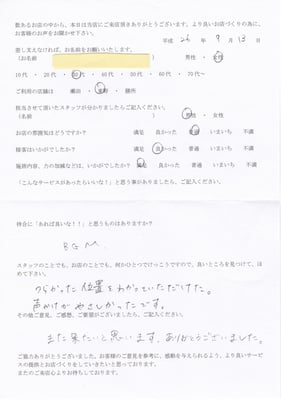 数あるお店の中から、本日は当店にご来店頂きありがとうございます。より良いお店づくりの為に、
お客様のお声をお聞かせ下さい。
平成 26 年 9 月 13 日
差し支えなければ、お名前をお願いいたします。
(お名前 ) 男性 ・ 女性
10代 ・ 20代 ・ 30代 ・ 40代 ・ 50代 ・ 60代 ・ 70代～
ご利用の店舗は 瀬田 ・ ・ 膳所
担当させて頂いたスタッフが分かりましたらご記入ください。
(名前 )
お店の雰囲気はどうですか? 満足 良かった 普通 いまいち 不満
接客はいかがでしたか? 満足 良かった 普通 いまいち 不満
施術内容、力の加減などは、いかがでしたか? 満足 良かった 普通 いまいち 不満
「こんなサービスがあったらいいな!」と思う事がありましたら、ご記入ください。
待合に「あれば良いな!!」と思うものはありますか?
BGM.
スタッフのことでも、お店のことでも、何かひとつでけっこうですので、良いところを見つけて、ほ
めて下さい。
つらかった位置をわかっていただけた。
声かけがやさしかったです。
その他ご意見、ご感想、ご要望がございましたら、ご記入ください。
また来たいと思います。ありがとうございました。
ご協力ありがとうございました。お客様のご意見を参考に、感動を与えられるよう、より良いサービ
スの提供とお店づくりをしていきたいと思っております。
またのご来店心よりお待ちしております。